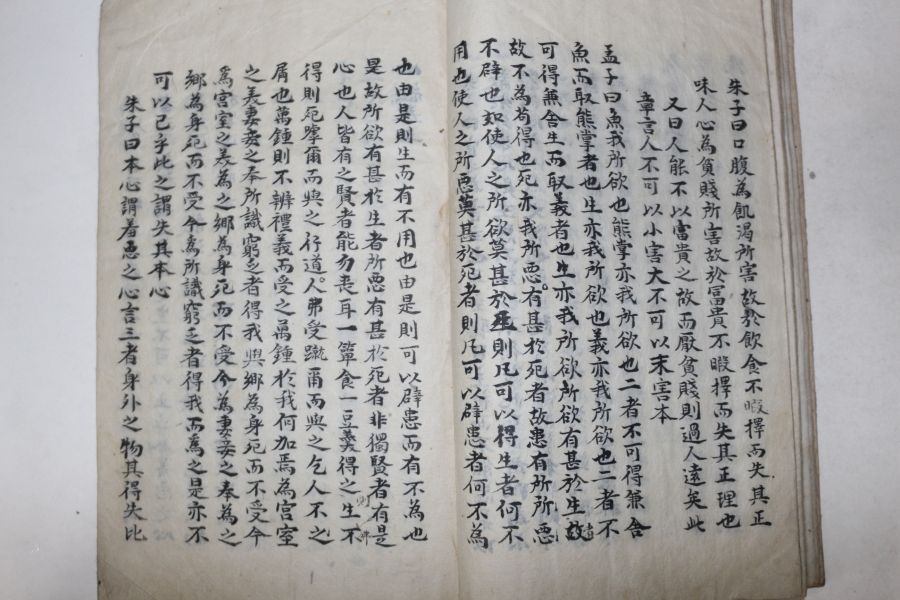 朱子曰口腹為飢渴所害故於飲食不暇擇而失其正
味人心為貧賤所害故於富貴不暇擇而失其正理也
又曰人能不以富貴之故而厭貧賤則過人遠矣此
章言人不可以小害大不可以末害本
孟子曰魚我所欲也熊掌亦我所欲也二者不可得兼舍
魚而取熊掌者也生亦我所欲也義亦我所欲也二者不
可得兼舍生而取義者也生亦我所欲所欲有甚於生故
故不為苟得也死亦我所惡所惡有甚於死者故患有所
不辟也如使人之所欲莫甚於生則凡可以得生者何不
用也使人之所惡莫甚於死者則凡可以辟患者何不為
也由是則生而有不用也由是則可以辟患而有不為也
是故所欲有甚於生者所惡有甚於死者非獨賢者有是
心也人皆有之賢者能勿喪耳一簞食一豆羹得之生不
得則死嘑爾而與之行道人弗受蹴爾而與之乞人不之
屑也萬鍾則不辨禮義而受之萬鍾於我何加焉為宮室
之美妻妾之奉所識窮乏者得我與鄉為身死而不受今
為宮室之美為之鄉為身死而不受今為妻妾之奉為之
鄉為身死而不受今為所識窮乏者得我而為之是亦不
可以已乎此之謂失其本心
朱子曰本心謂羞惡之心言三者身外之物其得失比